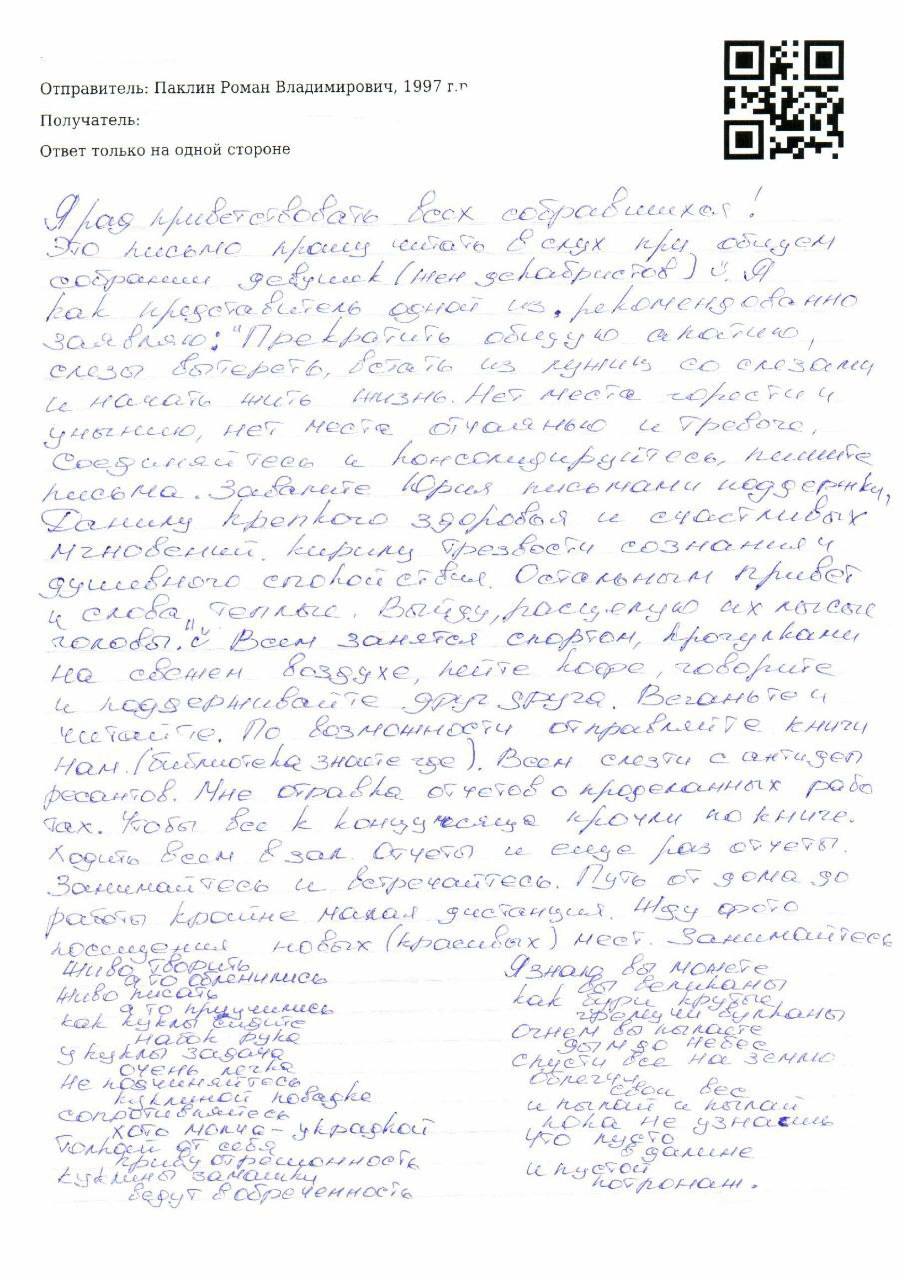 Отправитель: Паклин Роман Владимирович, 1997 г.р
Получатель:
Ответ только на одной стороне
Я рад приветствовать всех собравшихся!
Это письмо прошу читать в слух при общем
собрании девушек (жен декабристов) Ü. Я
как представитель одной из, рекомендованно
заявляю: "Прекратить общую апатию,
слезы вытереть, встать из лужиц со слезами
и начать жить жизнь. Нет места горести и
унынию, нет места отчаянью и тревоге,
Соединяйтесь и консолидируйтесь, пишите
письма. Завалите Юрия письмами поддержки,
Данилу крепкого здоровья и счастливых
мгновений. Кирилу трезвости сознания и
душевного спокойствия. Остальным привет
и слова, теплые. Выйду, расцелую их лысые
головы." Ü Всем занятся спортом, прогулками
на свежен воздухе, пейте кофе, говорите
и поддерживайте друг друга. Веганьте и
читайте. По возможности отправляйте книги
нам. (библиотека знаете где). Всем слезти с антидеп
ресантов. Мне отравка отчетов о проделанных рабо
тах. Чтобы все к концу месяца прочли по книге.
Ходить всем в зал. Отчеты и еще раз отчеты.
Занимайтесь и встречайтесь. Путь от дома до
работы крайне малая дистанция. Жду фото
посещения новых (красивых) мест. Занимайтесь
Живо творить
а то обленились
Живо писать
а то приучились
как куклы сидите
набок рука
у куклы задача
очень легка
Не подчиняйтесь
куклиной повадке
сопротивляйтесь
хоть молча - украдкой
Толкай от себя
криву отрешонность
куклины замашки
ведут в обреченность
Я знаю вы можете
вы великаны
как бури крутые
гремучи вулканы
Огнем вы пылаете
дым до небес
спусти все на землю
облегчи
свой вес
и пылай и пылай
пока не узнаешь
что пусто
в далине
и пустой
потронаж.